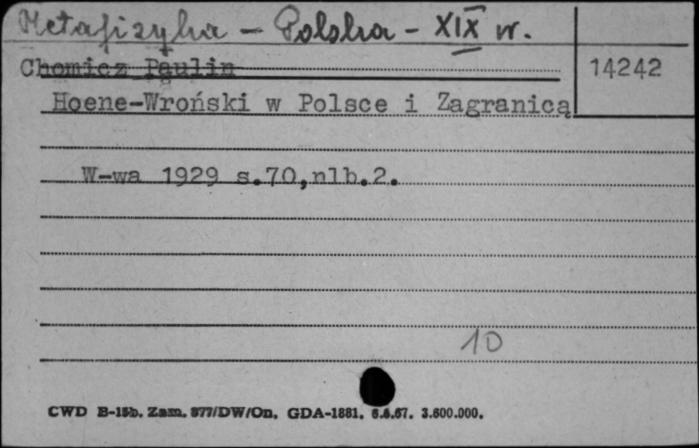 Metafizyka - Polska - XIX w.
Chomicz Paulin
14242
Hoene-Wroński w Polsce i Zagranicą
W-wa 1929 s.70,nlb.2.
10
CWD B-15b. Zam. 877/DW/On. GDA-1881. 6.6.67. 3.600.000.